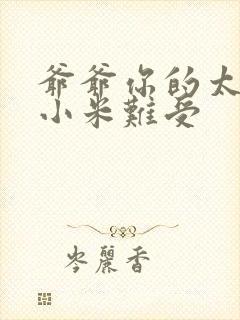 爺爺你的太
小米難受
岑麗香